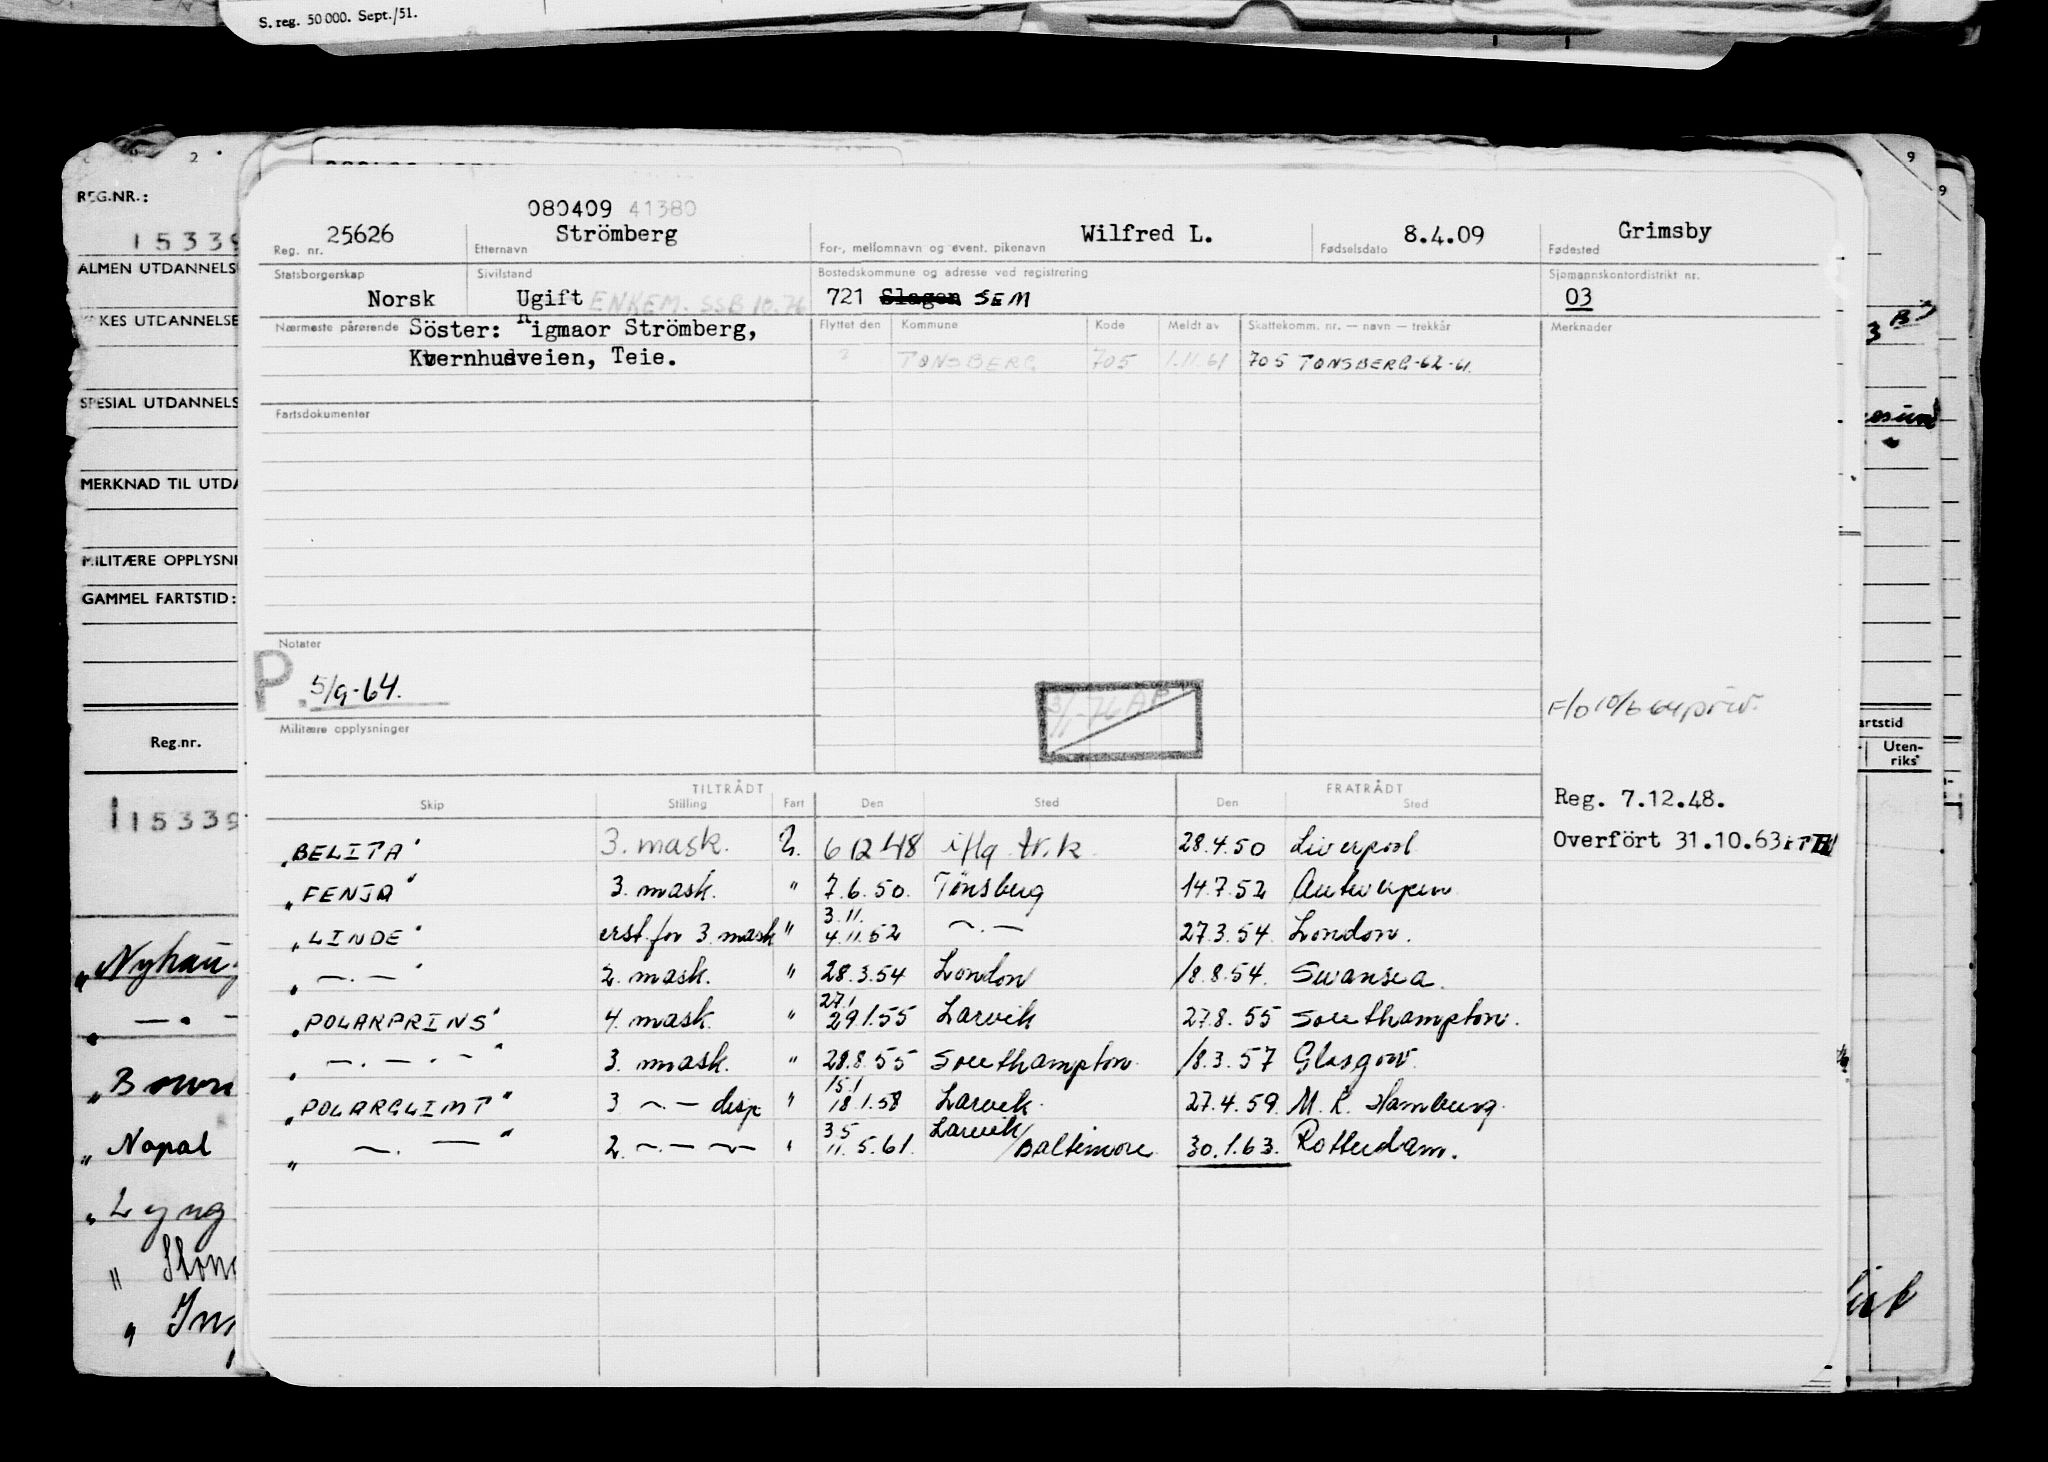 S. reg. 50 000. Sept./51.
2
9
9
REG.NR.:
15339
ALMEN UTDANNELS
KES UTDANNELSE
SPESIAL UTDANNELS
MERKNAD TIL UTDA
MILITÆRE OPPLYSNI
GAMMEL FARTSTID:
Reg.nr.
15339
"Nyhau
" — . —
"
"Nopal
"Lyng
artstid
Uten-
riks
080409 41380
Reg. nr. 25626 Etternavn Strömberg For-, mellomnavn og event. pikenavn Wilfred L. Fødselsdato 8.4.09 Fødested Grimsby
Statsborgerskap Sivilstand Bostedskommune og adresse ved registrering Sjømannskontordistrikt nr.
Norsk Ugift ENKEM. SSB 10.76 721 Slagen SEM 03
Nærmeste pårørende Söster: Nigmaor Strömberg, Flyttet den Kommune Kode Meldt av Skattekomm. nr. — navn — trekkår Merknader
Kvernhusveien, Teie. ? TØNSBERG 705 1.11.61 705 TØNSBERG-62-61.
Fartsdokumenter
Notater
P. 5/9-64.
F/O 10/6 64 priv.
Militære opplysninger
TILTRÅDT FRATRÅDT
Skip Stilling Fart Den Sted Den Sted
Reg. 7.12.48.
Overfört 31.10.63
"BELITA" 3. mask. U. 6 12 48 iflg tr.k. 28.4.50 Liverpool
"FENJA" 3. mask. " 7.6.50. Tønsberg 14.7.52 Antwerpen
"LINDE" erst. for 3. mask " 3.11. 4.11.52 — . — 27.3.54. London.
" — . — " 2. mask. " 28.3.54 London 18.8.54. Swansea.
"POLARPRINS" 4. mask. " 27.1 29.1.55 Larvik 27.8.55 Southampton.
" — . — . — " 3. mask. " 28.8.55 Southampton. 18.3.57 Glasgow.
"POLARGLIMT" 3 — . — disp " 15.1 18.1.58 Larvik. 27.4.59. M. R. Hamburg.
" — . — " 2. — . — . — " 3.5 11.5.61. Larvik/Baltimore 30.1.63. Rotterdam.